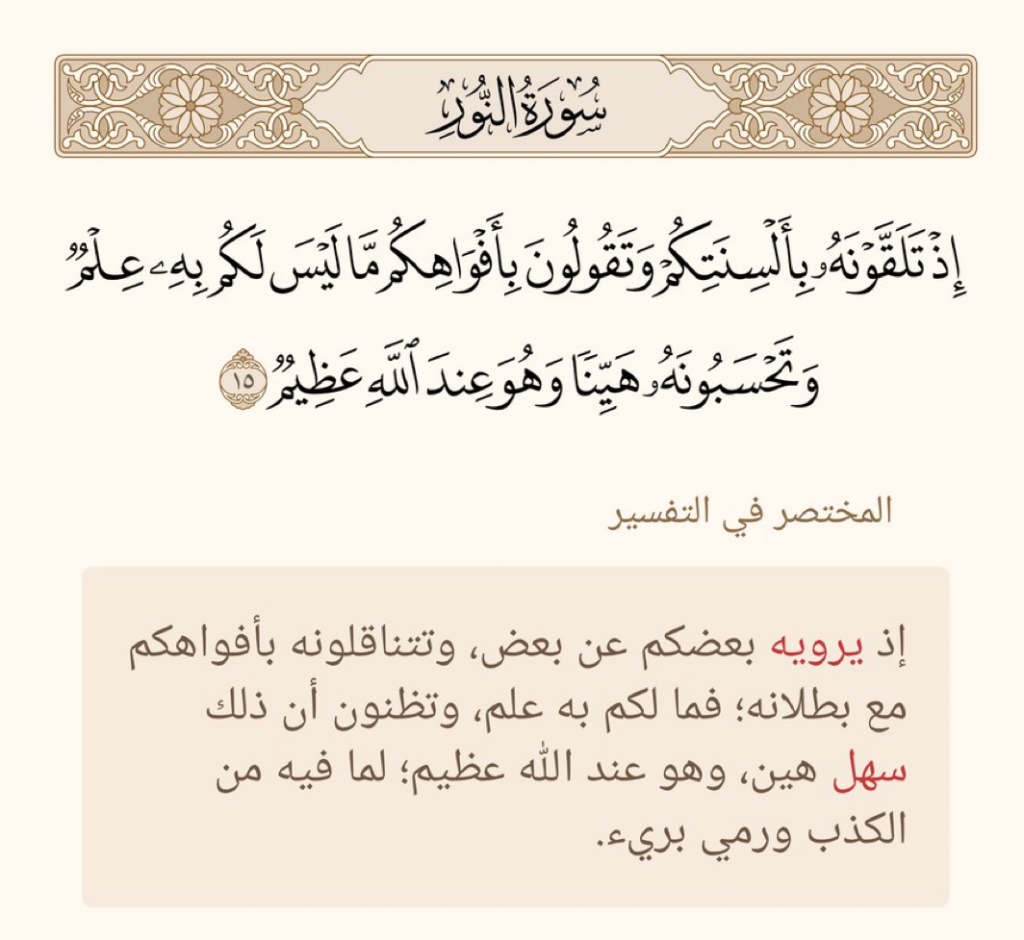 سُورَةُ النُّورِ
إِذْ تَلَقَّوْنَهُۥ بِأَلْسِنَتِكُمْ وَتَقُولُونَ بِأَفْوَاهِكُم مَّا لَيْسَ لَكُم بِهِۦ عِلْمٌ
وَتَحْسَبُونَهُۥ هَيِّنًا وَهُوَ عِندَ ٱللَّهِ عَظِيمٌ ١٥
المختصر في التفسير
إذ يرويه بعضكم عن بعض، وتتناقلونه بأفواهكم
مع بطلانه؛ فما لكم به علم، وتظنون أن ذلك
سهل هين، وهو عند الله عظيم؛ لما فيه من
الكذب ورمي بريء.